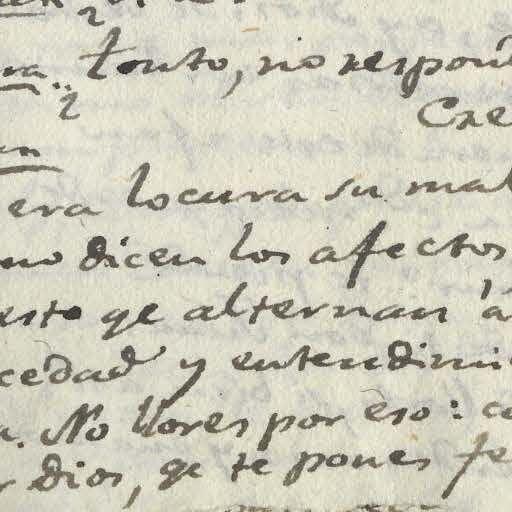 tonto, no respon
Cre
era locura su mal
mo dicen los afectos
esto qe alternan á
cedad y entendimi
a. No llores por eso: co
r dios, qe te pones fe